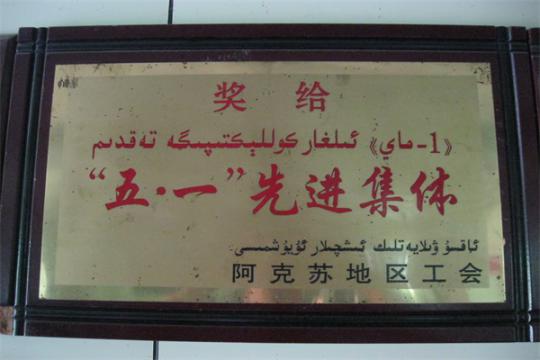 奖 给
«1-ماي» ئىلغار كوللېكتىپىگە تەقدىم
“五·一”先进集体
ئاقسۇ ۋىلايەتلىك ئىشچىلار ئۇيۇشمىسى
阿克苏地区工会